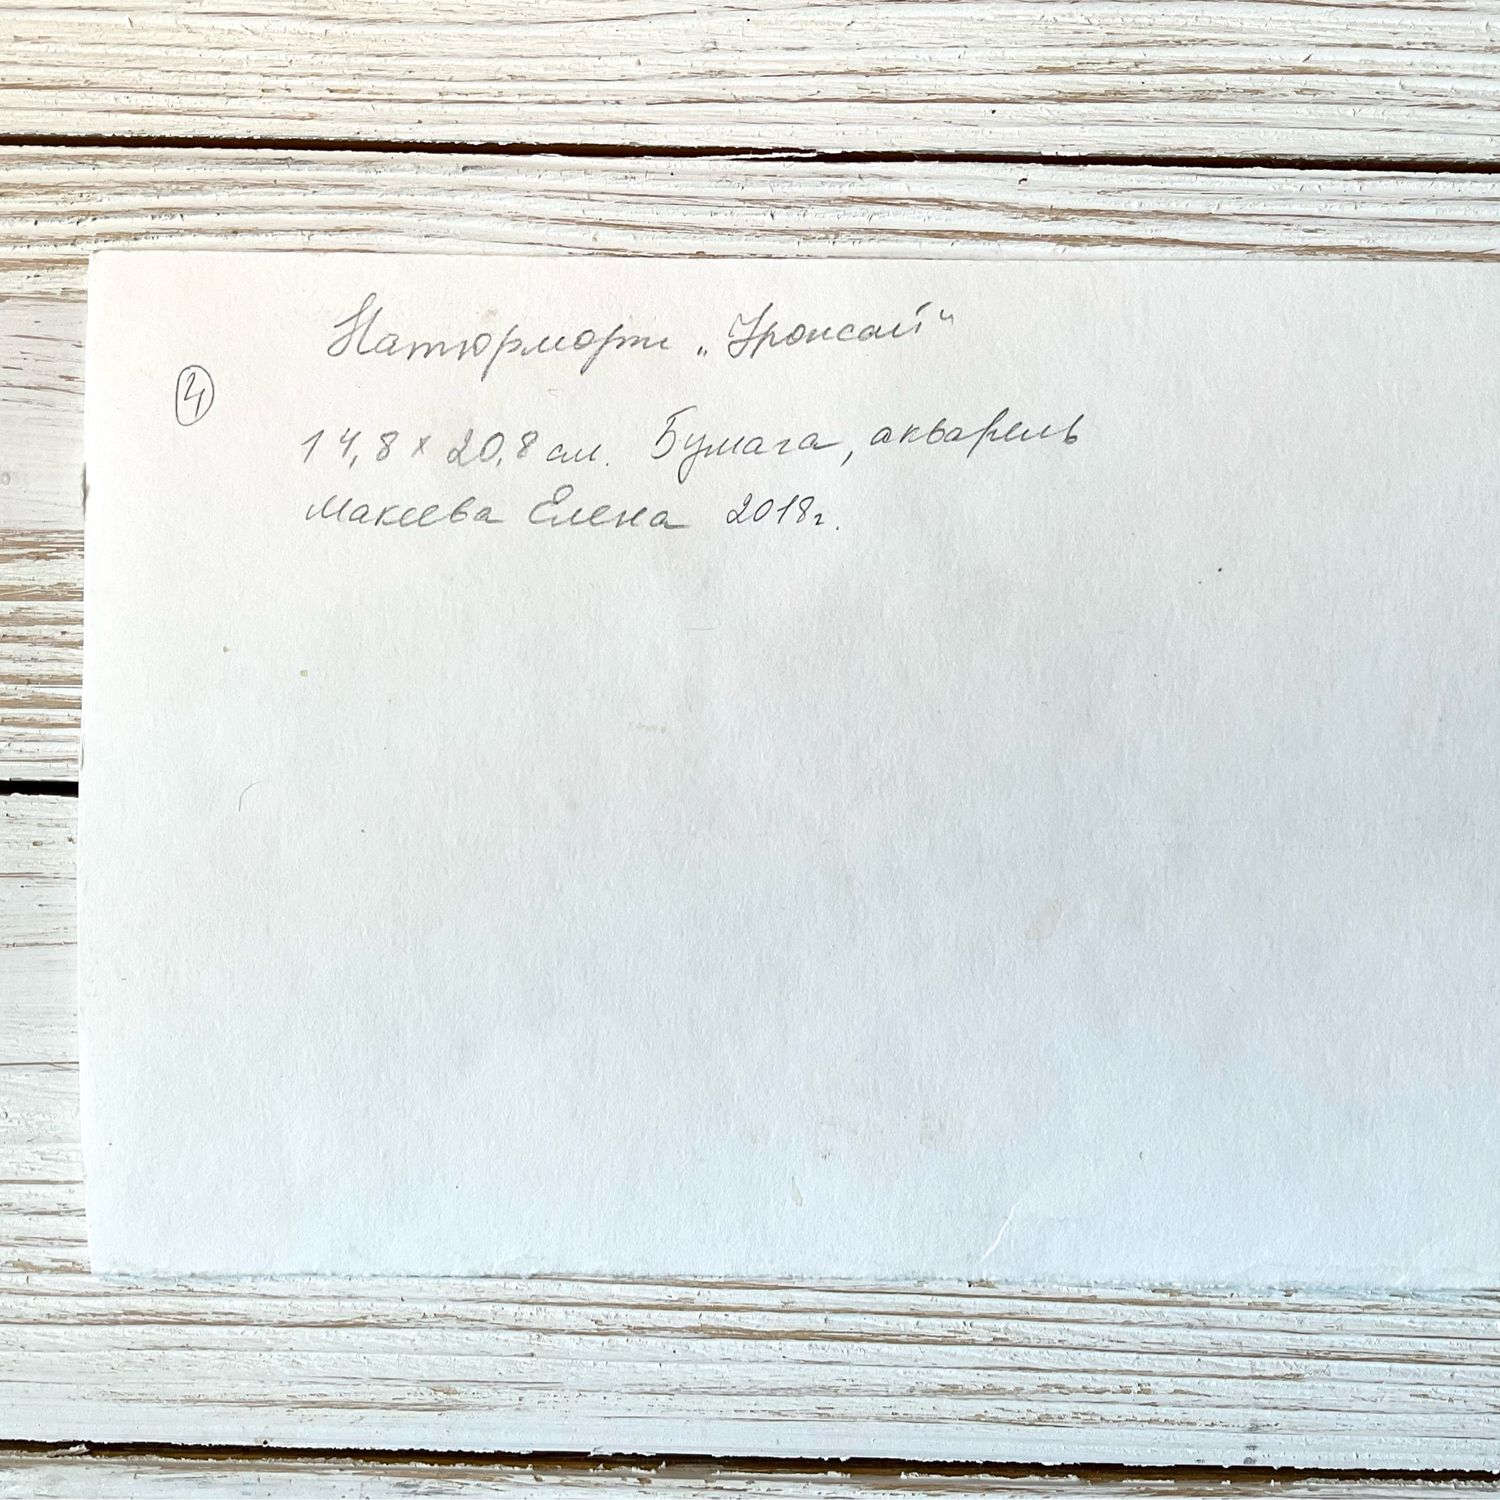 Натюрморт „Урожай“
④
14,8 x 20,8 см. Бумага, акварель
Макеева Елена 2018г.